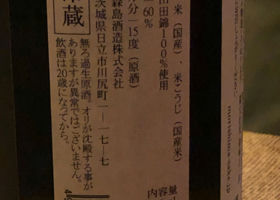 米（国産）、米こうじ（国産米）
田錦100％使用
60％
分15度（原酒）
森島酒造株式会社
茨城県日立市川尻町1-17-7
蔵
無ろ過生原酒。オリが沈殿する事が
ありますが異常ではございません。
飲酒は20歳になってから。
内容量